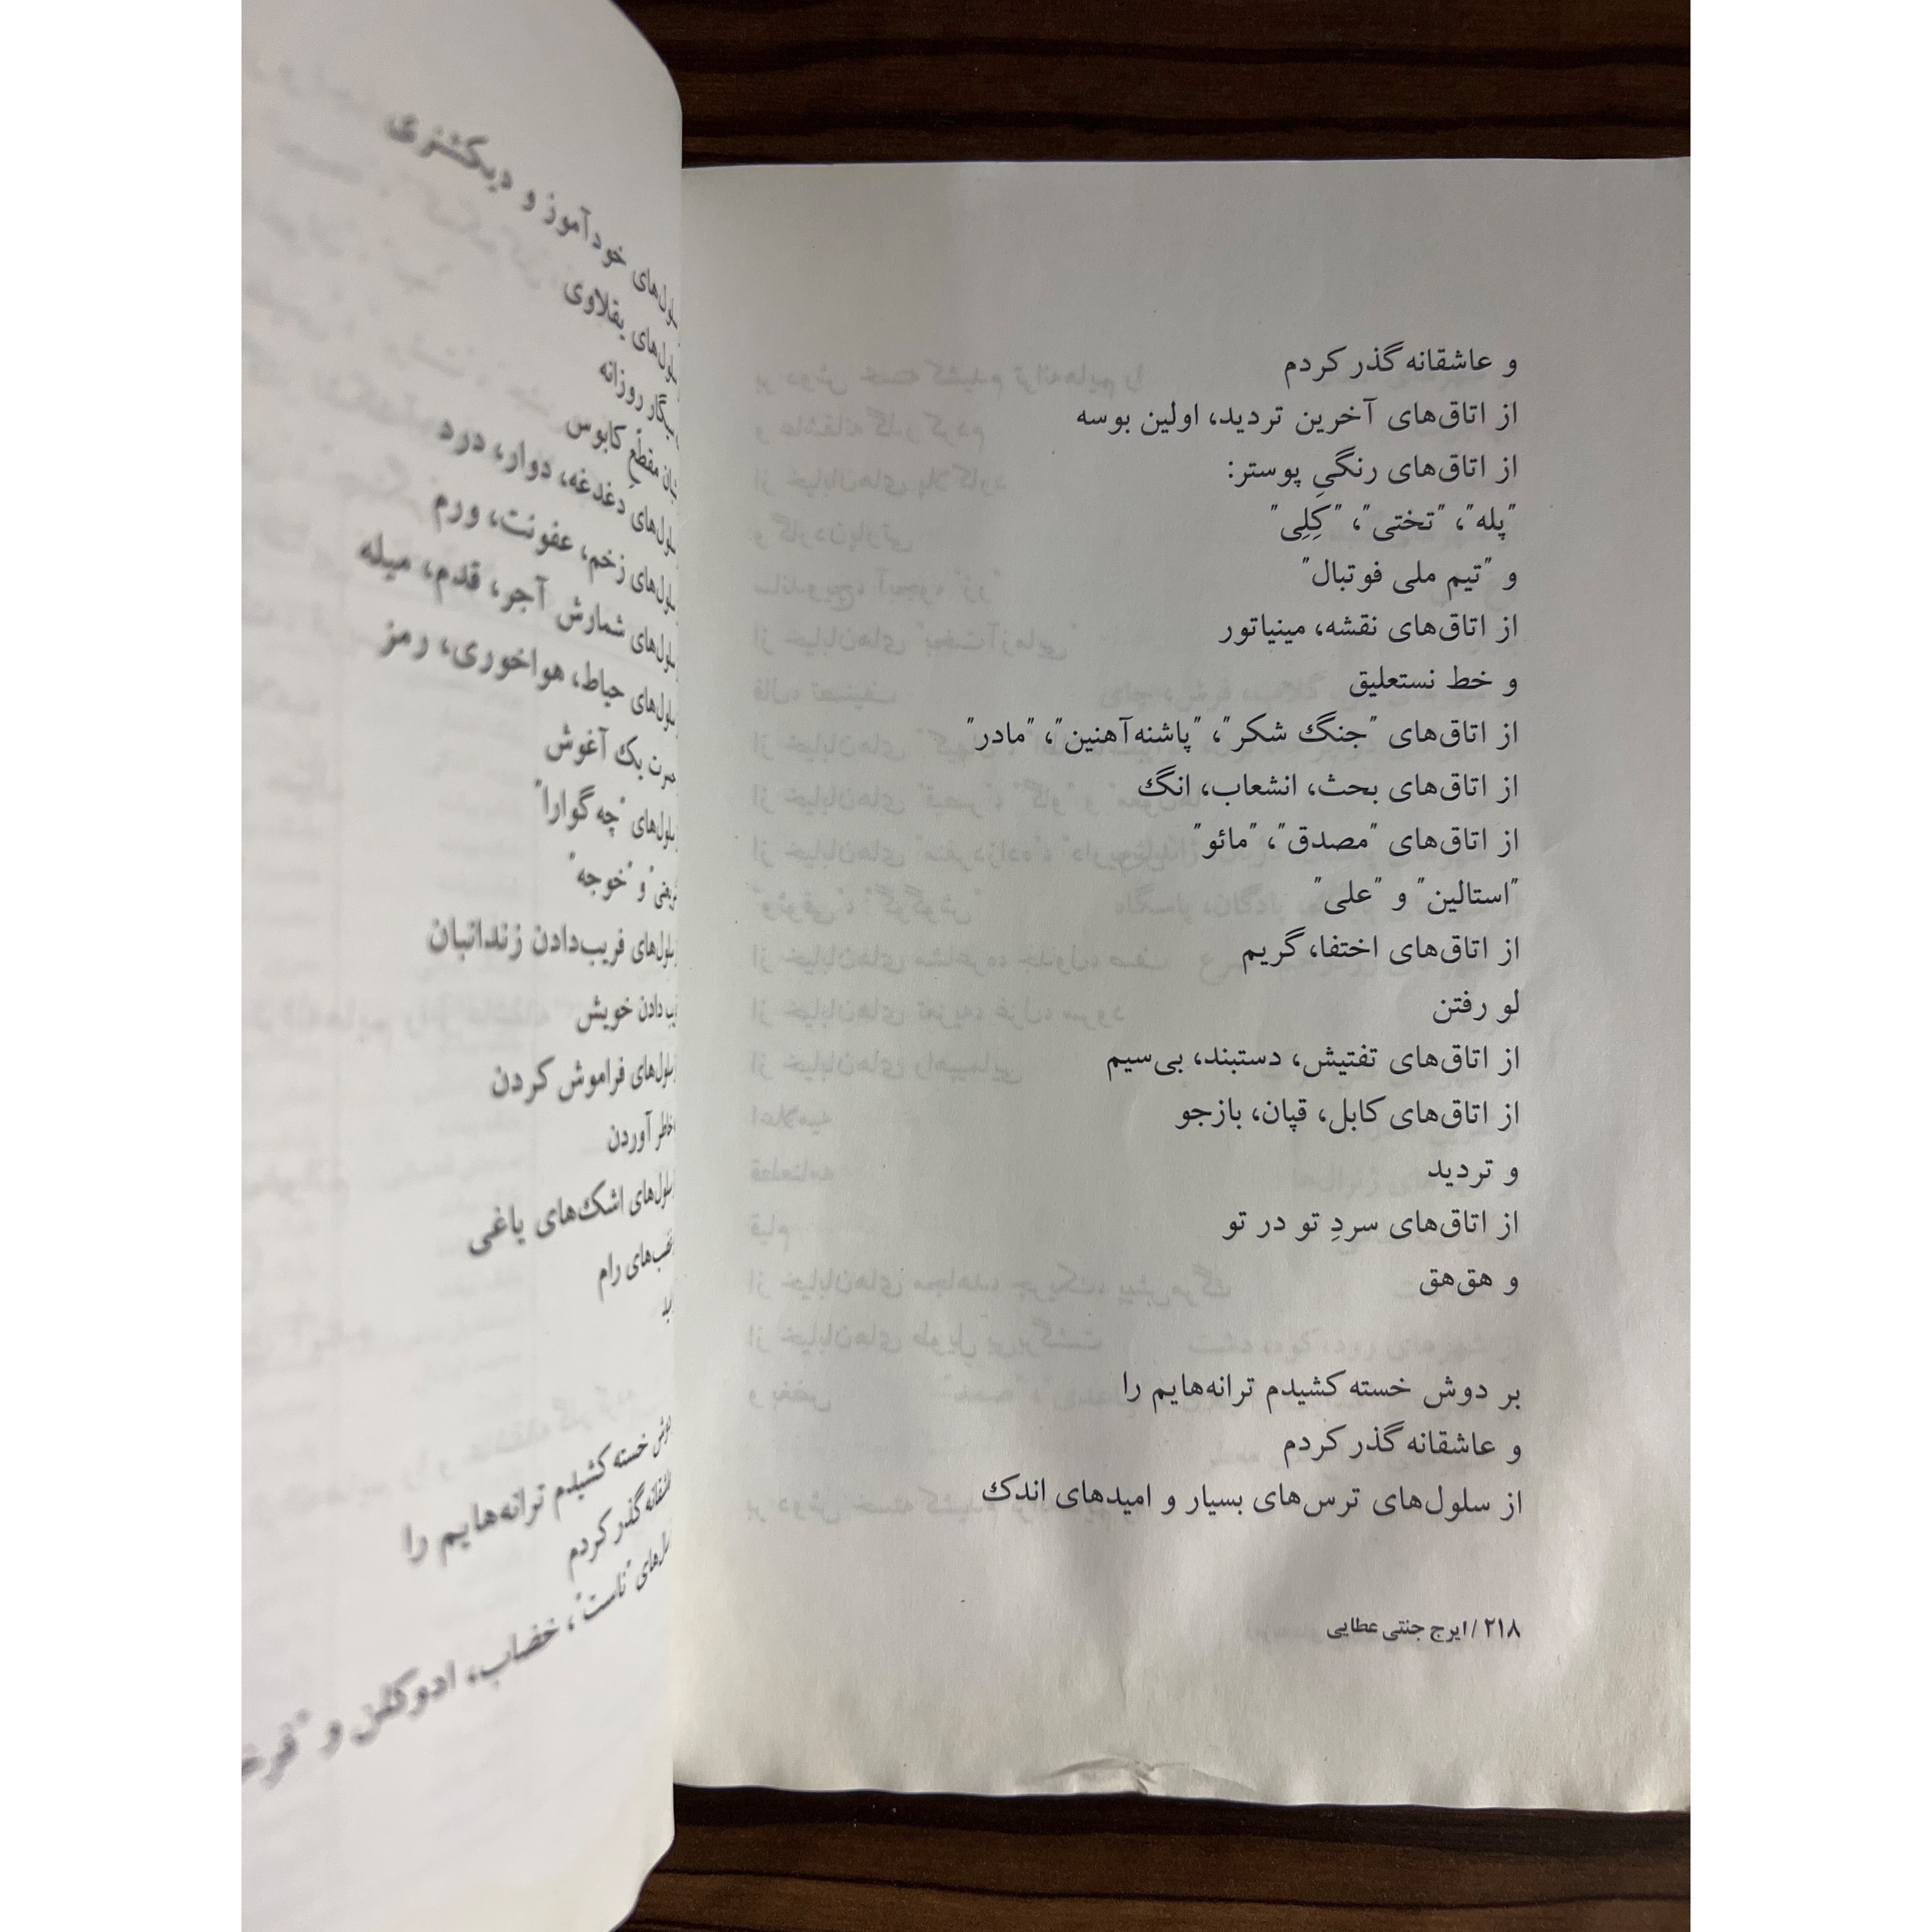 و عاشقانه گذر کردم
از اتاق‌های آخرین تردید، اولین بوسه
از اتاق‌های رنگیِ پوستر:
"پله"، "تختی"، "کِلِی"
و "تیم ملی فوتبال"
از اتاق‌های نقشه، مینیاتور
و خط نستعلیق
از اتاق‌های "جنگ شکر"، "پاشنه‌آهنین"، "مادر"
از اتاق‌های بحث، انشعاب، انگ
از اتاق‌های "مصدق"، "مائو"
"استالین" و "علی"
از اتاق‌های اختفا، گریم
لو رفتن
از اتاق‌های تفتیش، دستبند، بی‌سیم
از اتاق‌های کابل، قپان، بازجو
و تردید
از اتاق‌های سردِ تو در تو
و هق‌هق
بر دوش خسته کشیدم ترانه‌هایم را
و عاشقانه گذر کردم
از سلول‌های ترس‌های بسیار و امیدهای اندک
۲۱۸ / ایرج جنتی عطایی
خودآموز و دیکشنری
یقلاوی
روزانه
مقطعِ کابوس
دغدغه، دوار، درد
زخم، عفونت، ورم
شمارش آجر، قدم، میله
حیاط، هواخوری، رمز
یک آغوش
"چه‌گوارا"
و "خوجه"
فریب‌دادن زندانبان
دادن خویش
فراموش کردن
آوردن
اشک‌های یاغی
رام
خسته کشیدم ترانه‌هایم را
گذر کردم
خضاب، ادوکلن و